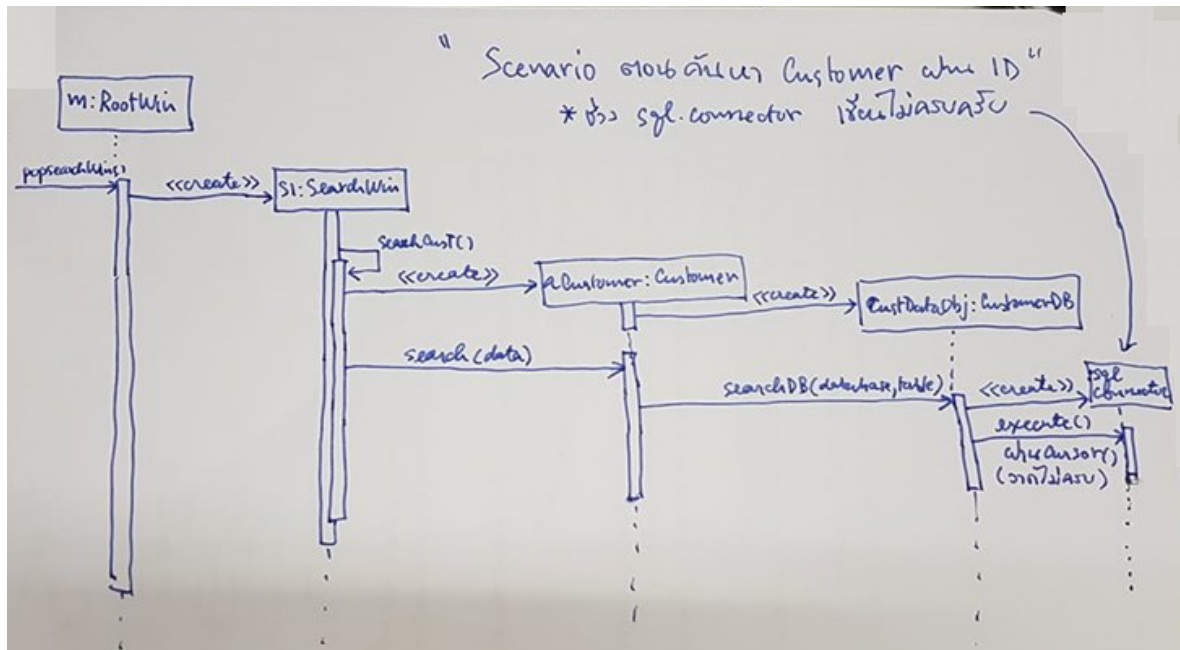 " Scenario ตอนค้นหา Customer ผ่าน ID "
* ช่วง sql.connector เขียนไม่ครบครับ
m: RootWin
popsearchWin()
<<create>>
S1: SearchWin
searchCust()
<<create>>
aCustomer: Customer
<<create>>
CustDataObj: CustomerDB
search (data)
searchDB(database, table)
<<create>>
sql
connector
execute()
ผ่าน cursor()
(วาดไม่ครบ)